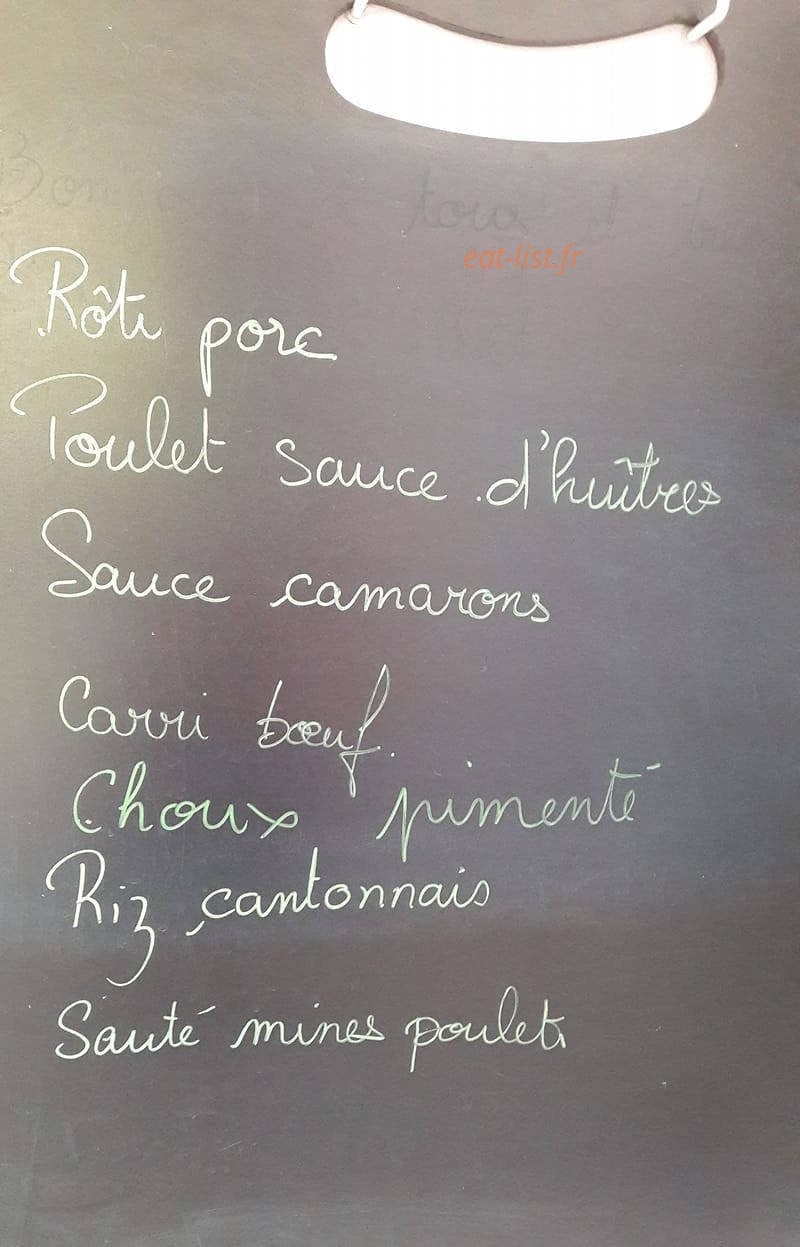 eat-list.fr
Rôti porc
Poulet sauce d'huîtres
Sauce camarons
Carri bœuf
Choux pimenté
Riz cantonnais
Sauté mines poulet